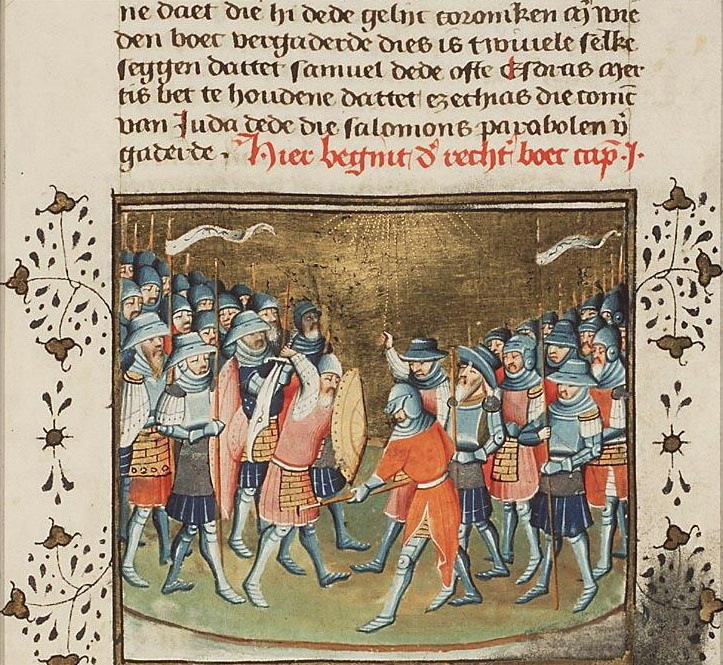 ne daet die hi dede gelijc coroniken eñ wie
den boec vergaderde dies is twivele selke
seggen dattet samuel dede ofte Esdras mer
tis bet te houdene dattet ezechias die conīc
van Juda dede die salomons parabolen v̄
gaderde . Hier begint d' recht' boec cap̄ .j.